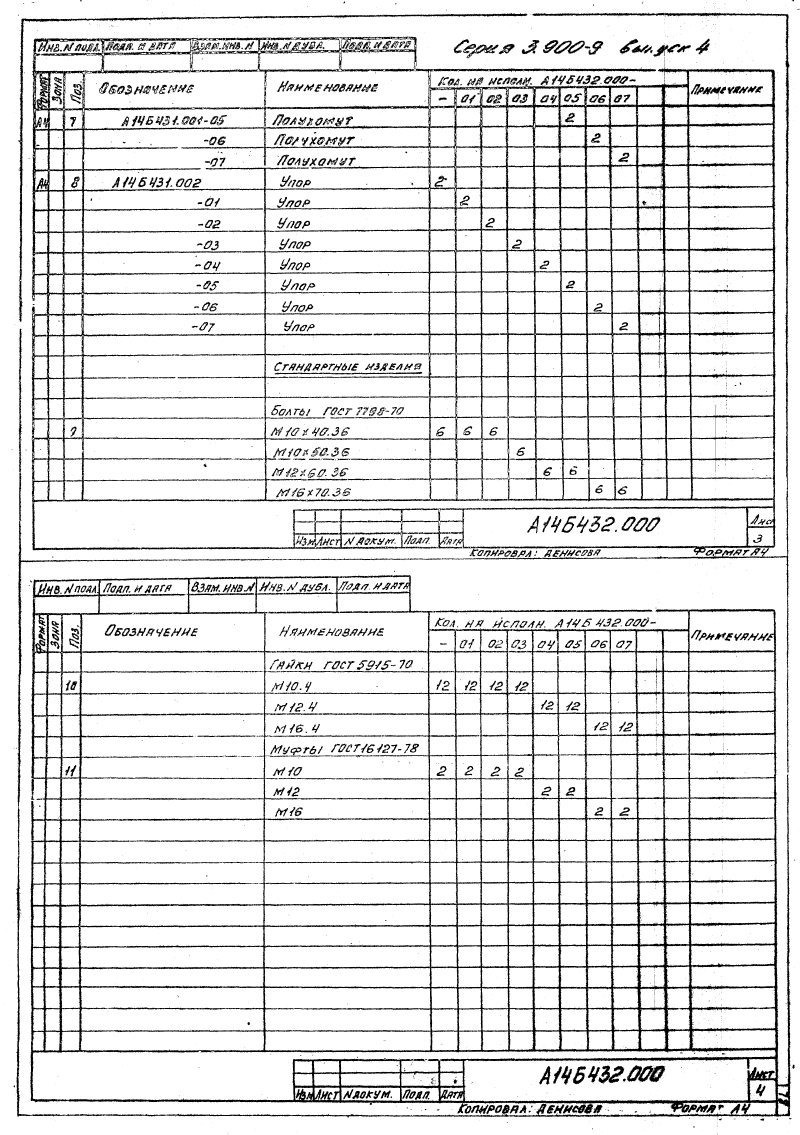 Серия 3.900-9 выпуск 4
Инв. N подл. Подп. и дата Взам. инв. N Инв. N дубл. Подп. и дата
Формат Зона Поз. Обозначение Наименование Кол. на исполн. А14Б432.000- Примечание
- 01 02 03 04 05 06 07
А4 7 А14Б431.001-05 Полухомут 2
-06 Полухомут 2
-07 Полухомут 2
А4 8 А14Б431.002 Упор 2
-01 Упор 2
-02 Упор 2
-03 Упор 2
-04 Упор 2
-05 Упор 2
-06 Упор 2
-07 Упор 2
Стандартные изделия
Болты ГОСТ 7798-70
М10×40.36 6 6 6
М10×50.36 6
М12×60.36 6 6
М16×70.36 6 6
А14Б432.000 Лист
3
Изм Лист N докум. Подп. Дата
Копировал: Денисова Формат А4
Инв. N подл. Подп. и дата Взам. инв. N Инв. N дубл. Подп. и дата
Формат Зона Поз. Обозначение Наименование Кол. на исполн. А14Б432.000- Примечание
- 01 02 03 04 05 06 07
Гайки ГОСТ 5915-70
10 М10.4 12 12 12 12
М12.4 12 12
М16.4 12 12
Муфты ГОСТ 16127-78
11 М10 2 2 2 2
М12 2 2
М16 2 2
А14Б432.000 Лист
4
Изм Лист N докум. Подп. Дата
Копировал: Денисова Формат А4